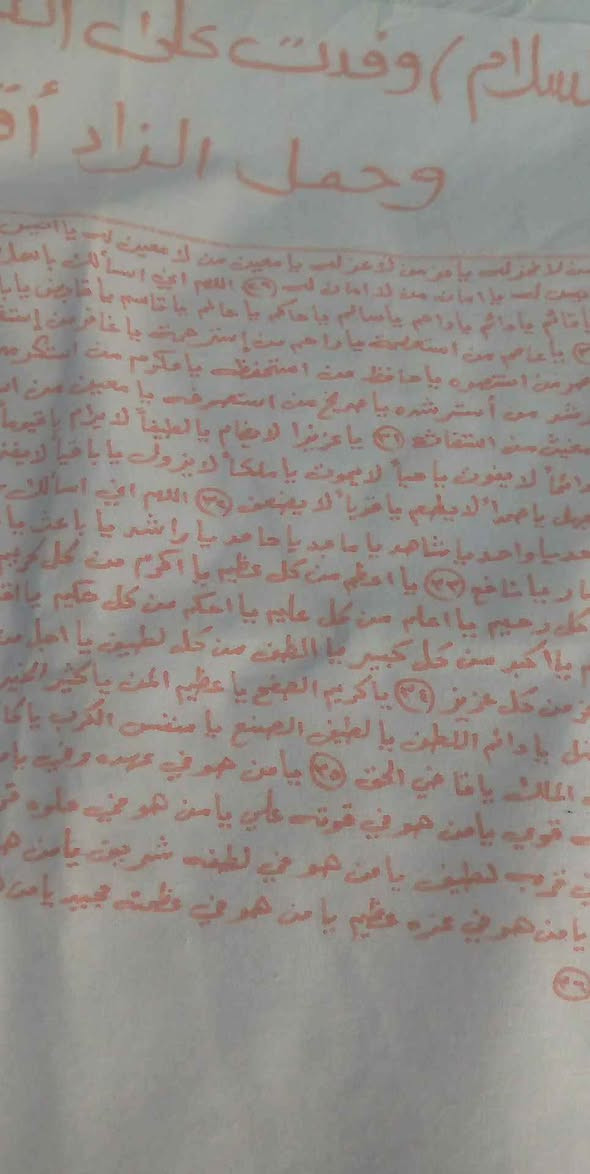 سلام) وفدت على
وحمل الزاد
من لا عز له يا معين من لا معين له يا انيس
له يا امان من لا امان له (٢٩) اللهم اني اسألك
يا قائم يا دائم يا راحم يا سالم يا حاكم يا عالم يا قاسم يا قابض يا
يا عاصم من استعصمه يا راحم من استرحمه يا غافر من
من استنصره يا حافظ من استحفظه يا مكرم من
من أسترشده يا صريخ من استصرخه يا معين من
مغيث من استغاثه (٣١) يا عزيزا لا يضام يا لطيفاً لا يرام يا قيوماً
دائماً لا يفوت يا حياً لا يموت يا ملكاً لا يزول يا باقياً لا
يا صمداً لا يطعم يا قوياً لا يضعف (٣٢) اللهم اني اسألك
يا واحد يا شاهد يا ماجد يا حامد يا راشد يا باعث يا
يا نافع (٣٣) يا اعظم من كل عظيم يا اكرم من كل كريم
كل رحيم يا اعلم من كل عليم يا احكم من كل حكيم يا
يا اكبر من كل كبير يا الطف من كل لطيف يا اجل من
من كل عزيز (٣٤) يا كريم الصفح يا عظيم المن يا كثير الخير
يا دائم اللطف يا لطيف الصنع يا منفس الكرب يا
الملك يا قاضي الحق (٣٥) يا من هو في عهده وفي يا
قوي يا من هو في قوته علي يا من هو في علوه
قرب لطيف يا من هو في لطفه شريف يا من
يا من هو في عزه عظيم يا من هو في عظمته مجيد يا من
(٣٦)